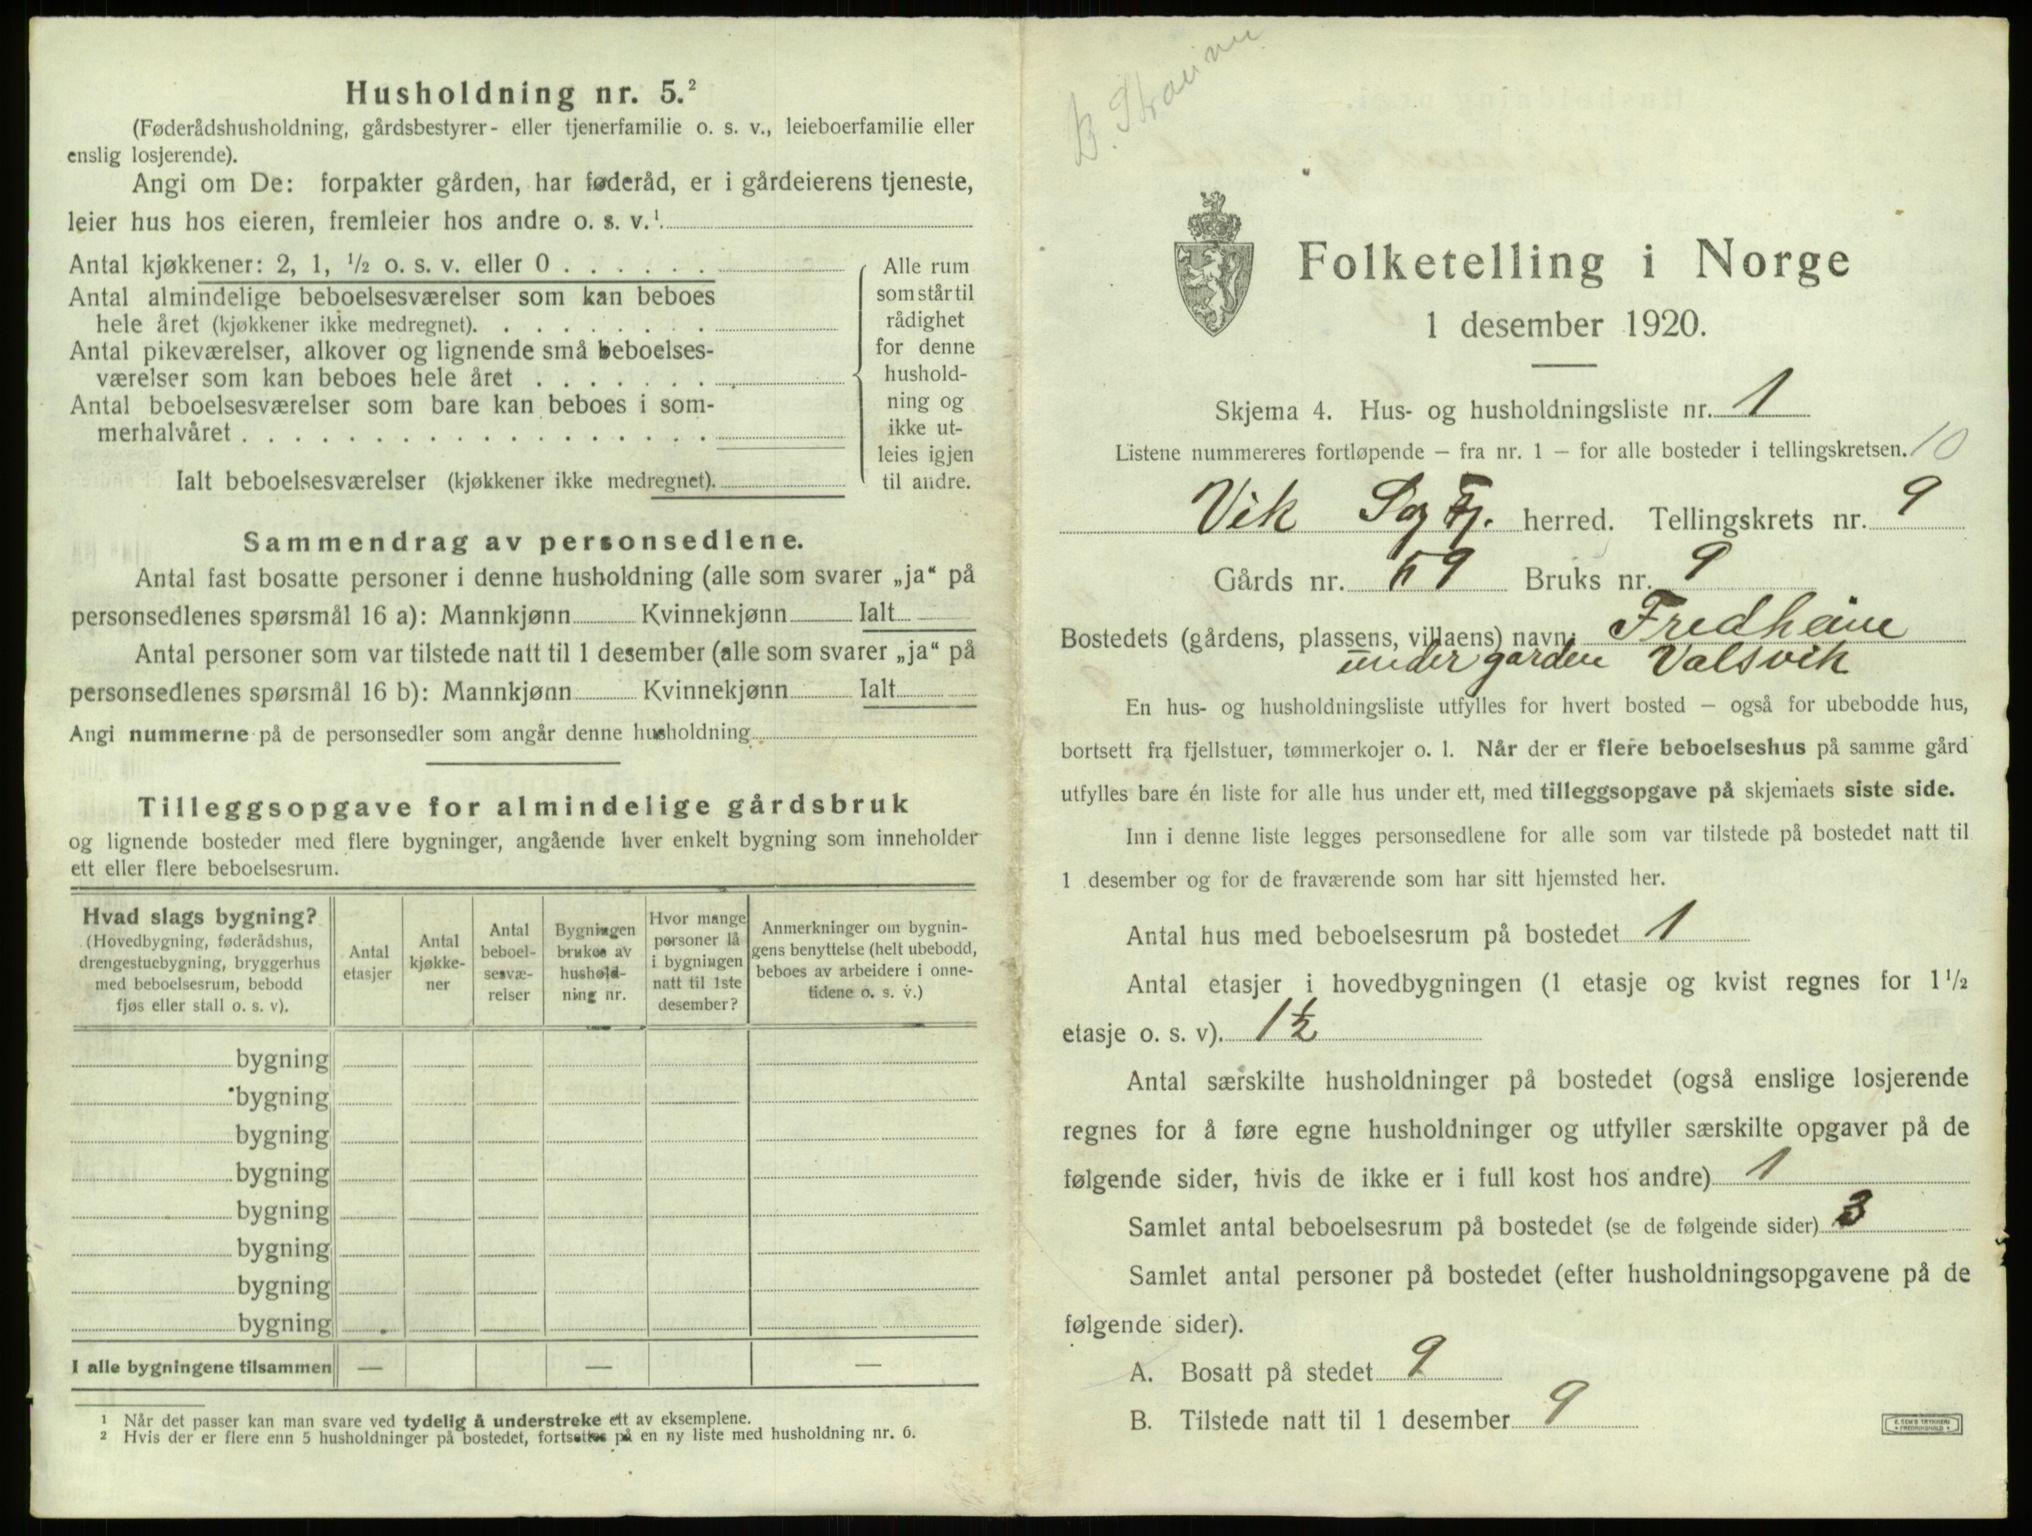 Husholdning nr. 5.²
(Føderådshusholdning, gårdsbestyrer- eller tjenerfamilie o. s. v., leieboerfamilie eller
enslig losjerende).
Angi om De: forpakter gården, har føderåd, er i gårdeierens tjeneste,
leier hus hos eieren, fremleier hos andre o. s. v.¹
Antal kjøkkener: 2, 1, ½ o. s. v. eller 0 . . . . . .
Antal almindelige beboelsesværelser som kan beboes
hele året (kjøkkener ikke medregnet). . . . . . . . .
Antal pikeværelser, alkover og lignende små beboelses-
værelser som kan beboes hele året . . . . . . .
Antal beboelsesværelser som bare kan beboes i som-
merhalvåret . . . . . . . . . . . . . . . . . .
Ialt beboelsesværelser (kjøkkener ikke medregnet).
Alle rum
som står til
rådighet
for denne
hushold-
ning og
ikke ut-
leies igjen
til andre.
Sammendrag av personsedlene.
Antal fast bosatte personer i denne husholdning (alle som svarer „ja“ på
personsedlenes spørsmål 16 a): Mannkjønn Kvinnekjønn Ialt
Antal personer som var tilstede natt til 1 desember (alle som svarer „ja“ på
personsedlenes spørsmål 16 b): Mannkjønn Kvinnekjønn Ialt
Angi nummerne på de personsedler som angår denne husholdning
Tilleggsopgave for almindelige gårdsbruk
og lignende bosteder med flere bygninger, angående hver enkelt bygning som inneholder
ett eller flere beboelsesrum.
Hvad slags bygning?
(Hovedbygning, føderådshus,
drengestuebygning, bryggerhus
med beboelsesrum, bebodd
fjøs eller stall o. s. v).
Antal
etasjer
Antal
kjøkke-
ner
Antal
beboel-
sesvæ-
relser
Bygningen
brukes av
hushold-
ning nr.
Hvor mange
personer lå
i bygningen
natt til 1ste
desember?
Anmerkninger om bygnin-
gens benyttelse (helt ubebodd,
beboes av arbeidere i onne-
tidene o. s. v.)
bygning
bygning
bygning
bygning
bygning
bygning
bygning
bygning
I alle bygningene tilsammen — — —
¹ Når det passer kan man svare ved tydelig å understreke ett av eksemplene.
² Hvis der er flere enn 5 husholdninger på bostedet, fortsettes på en ny liste med husholdning nr. 6.
Folketelling i Norge
1 desember 1920.
Skjema 4. Hus- og husholdningsliste nr. 1
Listene nummereres fortløpende — fra nr. 1 — for alle bosteder i tellingskretsen. 10
Vik Sogn Fj. herred. Tellingskrets nr. 9
Gårds nr. 59 Bruks nr. 9
Bostedets (gårdens, plassens, villaens) navn: Fredheim
under garden Valsvik
En hus- og husholdningsliste utfylles for hvert bosted — også for ubebodde hus,
bortsett fra fjellstuer, tømmerkojer o. l. Når der er flere beboelseshus på samme gård
utfylles bare én liste for alle hus under ett, med tilleggsopgave på skjemaets siste side.
Inn i denne liste legges personsedlene for alle som var tilstede på bostedet natt til
1 desember og for de fraværende som har sitt hjemsted her.
Antal hus med beboelsesrum på bostedet 1
Antal etasjer i hovedbygningen (1 etasje og kvist regnes for 1½
etasje o. s. v). 1½
Antal særskilte husholdninger på bostedet (også enslige losjerende
regnes for å føre egne husholdninger og utfyller særskilte opgaver på de
følgende sider, hvis de ikke er i full kost hos andre) 1
Samlet antal beboelsesrum på bostedet (se de følgende sider) 3
Samlet antal personer på bostedet (efter husholdningsopgavene på de
følgende sider).
A. Bosatt på stedet 9
B. Tilstede natt til 1 desember 9